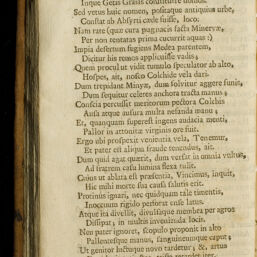 Inque Getis Graiis constituere domos.
Sed vetus huic nomen, positaque antiquius urbe,
Constat ab Absyrti cæde fuisse, loco.
Nam rate (quæ cura pugnacis facta Minervæ,
Per non tentatas prima cucurrit aquas :)
Impia desertum fugiens Medea parentem,
Dicitur his remos applicuisse vadis ;
Quem procul ut vidit tumulo speculator ab alto,
Hospes, ait, nosco Colchide vela dari.
Dum trepidant Minyæ, dum solvitur aggere funis,
Dum sequitur celeres anchora tracta manus ;
Conscia percussit meritorum pectora Colchis
Ausa atque ausura multa nefanda manu ;
Et, quanquam superest ingens audacia menti,
Pallor in attonitæ virginis ore fuit.
Ergo ubi prospexit venientia vela, Tenemur,
Et pater est aliqua fraude tenendus, ait.
Dum quid agat quærit, dum versat in omnia vultus,
Ad fratrem casu lumina flexa tulit.
Cujus ut oblata est præsentia, Vincimus, inquit,
Hic mihi morte sua causa salutis erit.
Protinus ignari, nec quidquam tale timentis,
Innocuum rigido perforat ense latus.
Atque ita divellit, divulsaque membra per agros
Dissipat, in multis invenienda locis.
Neu pater ignoret, scopulo proponit in alto
Pallentesque manus, sanguineumque caput ;
Ut genitor luctuque novo tardetur ; &, artus